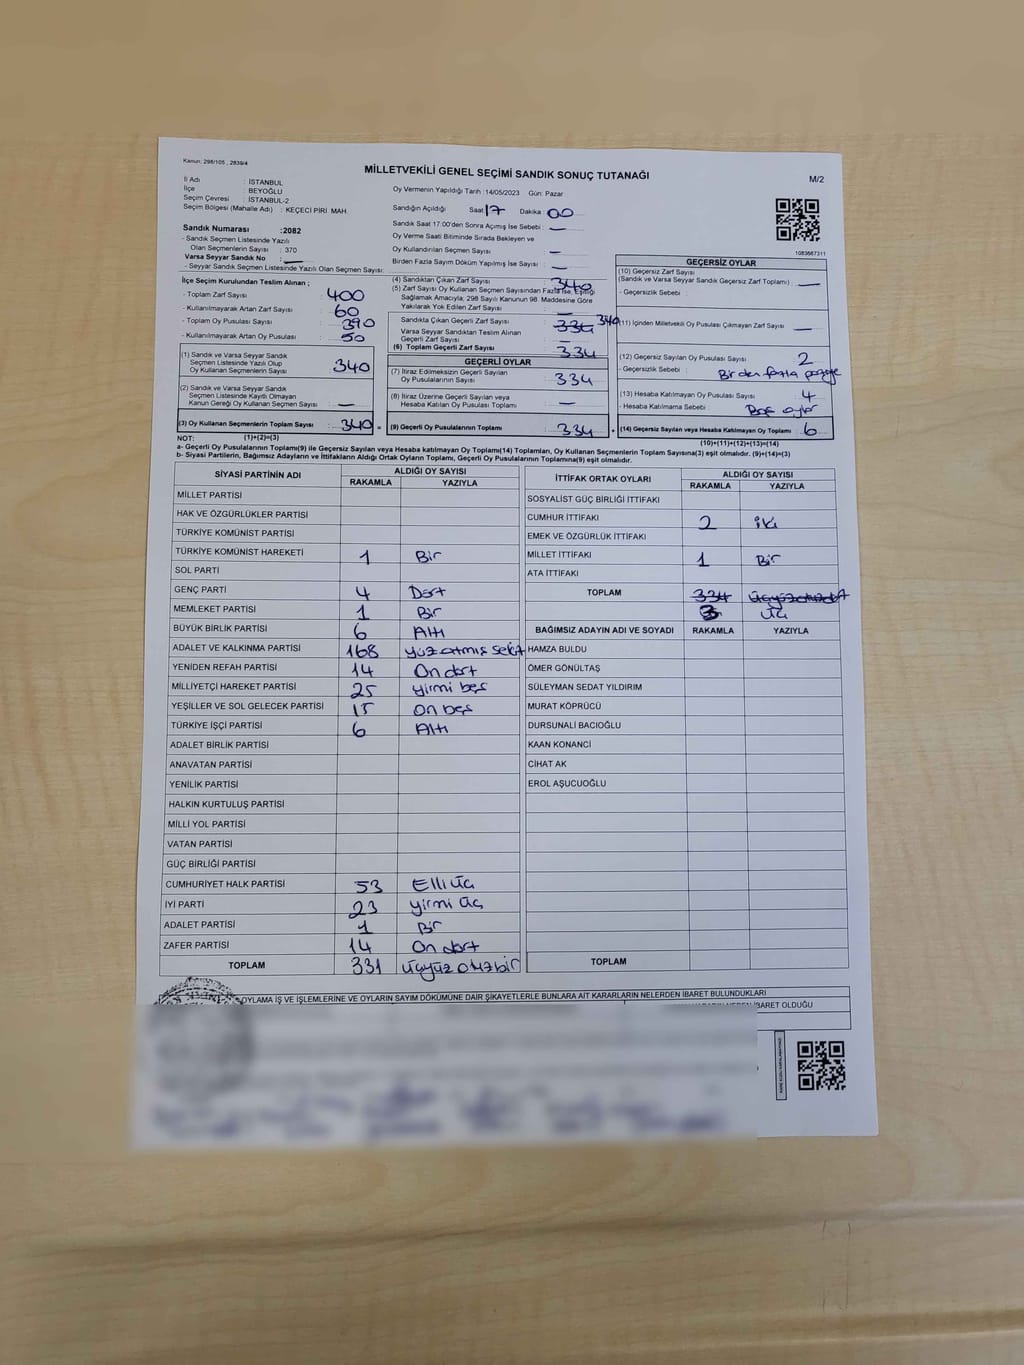 Kanun: 298/105 , 2839/4
MİLLETVEKİLİ GENEL SEÇİMİ SANDIK SONUÇ TUTANAĞI
M/2
İl Adı : İSTANBUL
İlçe : BEYOĞLU
Seçim Çevresi : İSTANBUL-2
Seçim Bölgesi (Mahalle Adı) : KEÇECİ PİRİ MAH.
Sandık Numarası : 2082
- Sandık Seçmen Listesinde Yazılı
Olan Seçmenlerin Sayısı : 370
Varsa Seyyar Sandık No : —
- Seyyar Sandık Seçmen Listesinde Yazılı Olan Seçmen Sayısı:
Oy Vermenin Yapıldığı Tarih :14/05/2023 Gün: Pazar
Sandığın Açıldığı Saat: 17 Dakika : 00
Sandık Saat 17:00'den Sonra Açımış İse Sebebi : —
Oy Verme Saati Bitiminde Sırada Bekleyen ve
Oy Kullandırılan Seçmen Sayısı : —
Birden Fazla Sayım Döküm Yapılmış İse Sayısı : —
1083667311
İlçe Seçim Kurulundan Teslim Alınan ;
- Toplam Zarf Sayısı : 400
- Kullanılmayarak Artan Zarf Sayısı : 60
- Toplam Oy Pusulası Sayısı : 390
- Kullanılmayarak Artan Oy Pusulası Sayısı : 50
(1) Sandık ve Varsa Seyyar Sandık
Seçmen Listesinde Yazılı Olup
Oy Kullanan Seçmen Sayısı : 340
(2) Sandık ve Varsa Seyyar Sandık
Seçmen Listesinde Kayıtlı Olmayan
Kanun Gereği Oy Kullanan Seçmen Sayısı : —
(3) Oy Kullanan Seçmenlerin Toplam Sayısı : 340 =
(1)+(2)=(3)
(4) Sandıktan Çıkan Zarf Sayısı : 340
(5) Zarf Sayısı Oy Kullanan Seçmen Sayısından Fazla İse, Eşitliği
Sağlamak Amacıyla; 298 Sayılı Kanunun 98. Maddesine Göre
Yakılarak Yok Edilen Zarf Sayısı : —
Sandıkta Çıkan Geçerli Zarf Sayısı : 334 340
Varsa Seyyar Sandıktan Teslim Alınan
Geçerli Zarf Sayısı : —
(6) Toplam Geçerli Zarf Sayısı : 334
GEÇERLİ OYLAR
(7) İtiraz Edilmeksizin Geçerli Sayılan
Oy Pusulalarının Sayısı : 334
(8) İtiraz Üzerine Geçerli Sayılan veya
Hesaba Katılan Oy Pusulası Toplamı : —
(9) Geçerli Oy Pusulalarının Toplamı : 334 +
GEÇERSİZ OYLAR
(10) Geçersiz Zarf Sayısı
(Sandık ve Varsa Seyyar Sandık Geçersiz Zarf Toplamı) : —
- Geçersizlik Sebebi :
(11) İçinden Milletvekili Oy Pusulası Çıkmayan Zarf Sayısı : —
(12) Geçersiz Sayılan Oy Pusulası Sayısı : 2
- Geçersizlik Sebebi : Birden fazla
(13) Hesaba Katılmayan Oy Pusulası Sayısı : 4
- Hesaba Katılmama Sebebi : Boş oylar
(14) Geçersiz Sayılan veya Hesaba Katılmayan Oy Toplamı : 6
(10)+(11)+(12)+(13)=(14)
NOT:
a- Geçerli Oy Pusulalarının Toplamı(9) ile Geçersiz Sayılan veya Hesaba katılmayan Oy Toplamı(14) Toplamları, Oy Kullanan Seçmenlerin Toplam Sayısına(3) eşit olmalıdır. (9)+(14)=(3)
b- Siyasi Partilerin, Bağımsız Adayların ve İttifakların Aldığı Ortak Oyların Toplamı, Geçerli Oy Pusulalarının Toplamına(9) eşit olmalıdır.
SİYASİ PARTİNİN ADI ALDIĞI OY SAYISI
RAKAMLA YAZIYLA
MİLLET PARTİSİ
HAK VE ÖZGÜRLÜKLER PARTİSİ
TÜRKİYE KOMÜNİST PARTİSİ
TÜRKİYE KOMÜNİST HAREKETİ 1 Bir
SOL PARTİ
GENÇ PARTİ 4 Dört
MEMLEKET PARTİSİ 1 Bir
BÜYÜK BİRLİK PARTİSİ 6 Altı
ADALET VE KALKINMA PARTİSİ 168 yüzatmış sekiz
YENİDEN REFAH PARTİSİ 14 On dört
MİLLİYETÇİ HAREKET PARTİSİ 25 yirmi beş
YEŞİLLER VE SOL GELECEK PARTİSİ 15 on beş
TÜRKİYE İŞÇİ PARTİSİ 6 Altı
ADALET BİRLİK PARTİSİ
ANAVATAN PARTİSİ
YENİLİK PARTİSİ
HALKIN KURTULUŞ PARTİSİ
MİLLİ YOL PARTİSİ
VATAN PARTİSİ
GÜÇ BİRLİĞİ PARTİSİ
CUMHURİYET HALK PARTİSİ 53 Elli üç
İYİ PARTİ 23 yirmi üç
ADALET PARTİSİ 1 Bir
ZAFER PARTİSİ 14 On dört
TOPLAM 331 üçyüz otuzbir
İTTİFAK ORTAK OYLARI ALDIĞI OY SAYISI
RAKAMLA YAZIYLA
SOSYALİST GÜÇ BİRLİĞİ İTTİFAKI
CUMHUR İTTİFAKI 2 iki
EMEK VE ÖZGÜRLÜK İTTİFAKI
MİLLET İTTİFAKI 1 Bir
ATA İTTİFAKI
TOPLAM 334 üçyüzotuzdört
3 üç
BAĞIMSIZ ADAYIN ADI VE SOYADI RAKAMLA YAZIYLA
HAMZA BULDU
ÖMER GÖNÜLTAŞ
SÜLEYMAN SEDAT YILDIRIM
MURAT KÖPRÜCÜ
DURSUNALİ BACIOĞLU
KAAN KONANCİ
CİHAT AK
EROL AŞUCUOĞLU
TOPLAM
OYLAMA İŞ VE İŞLEMLERİNE VE OYLARIN SAYIM DÖKÜMÜNE DAİR ŞİKAYETLERLE BUNLARA AİT KARARLARIN NELERDEN İBARET BULUNDUKLARI
NEDEN İBARET OLDUĞU